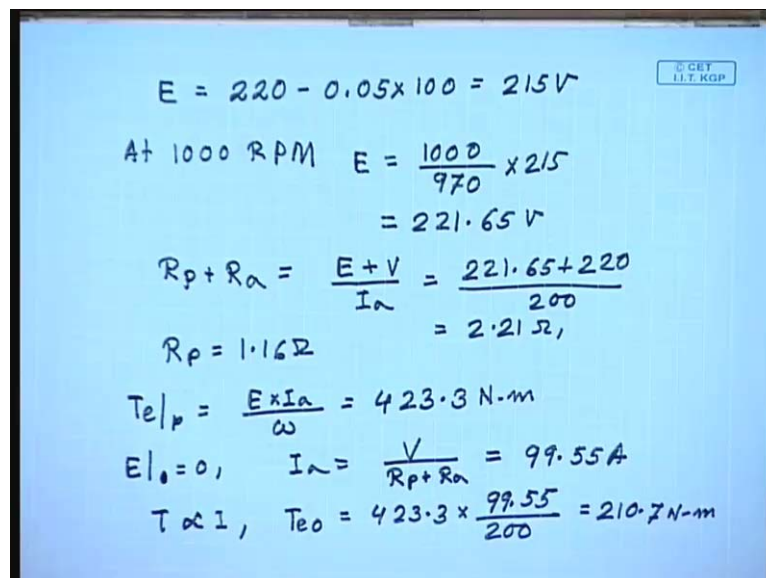 © CET
I.I.T. KGP
E = 220 - 0.05 × 100 = 215 V
At 1000 RPM E = 1000/970 × 215
= 221.65 V
Rp + Ra = (E + V)/Ia = (221.65 + 220)/200
= 2.21 Ω,
Rp = 1.16 Ω
Te|p = (E × Ia)/ω = 423.3 N-m
E|o = 0, Ia = V/(Rp + Ra) = 99.55 A
T ∝ I, Teo = 423.3 × 99.55/200 = 210.7 N-m